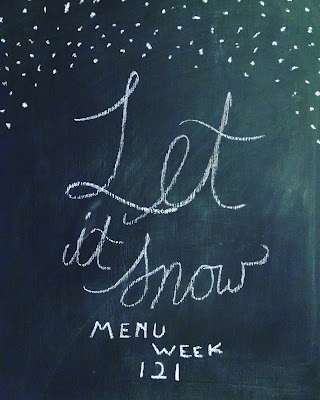 Let
it
snow
MENU
WEEK
121